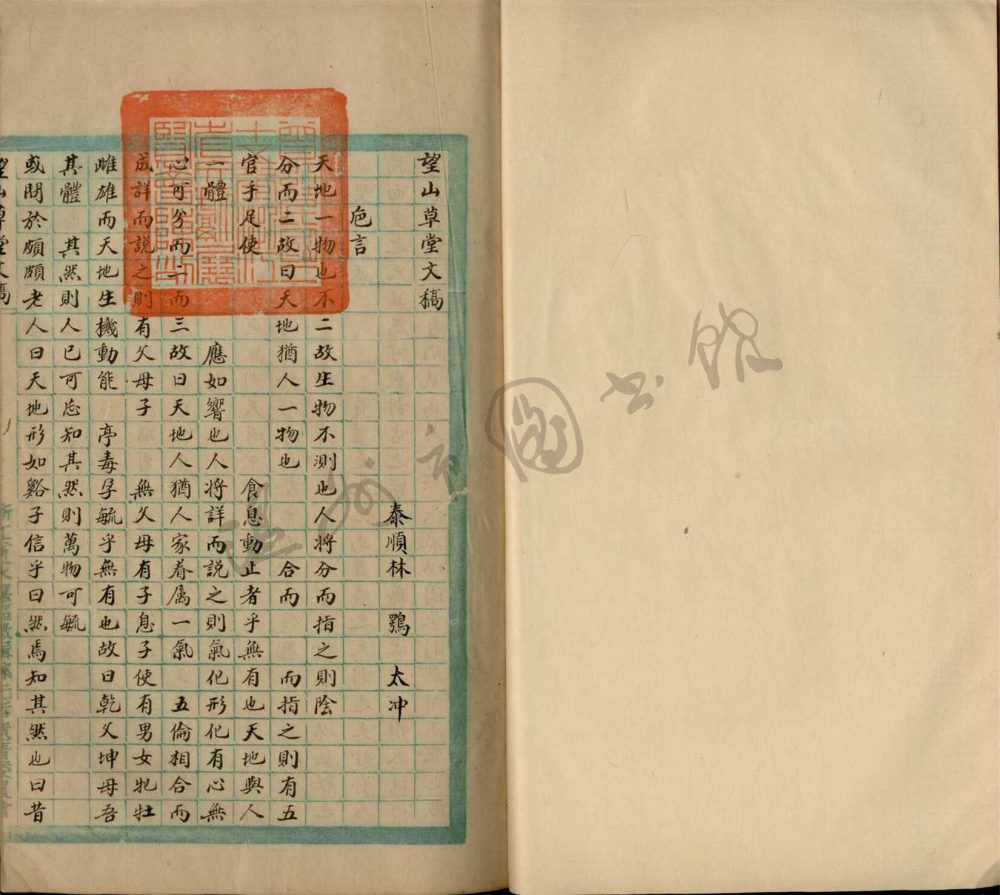 望山草堂文稿
泰順林 鶚 太冲
卮言
天地一物也不二故生物不測也人將分而指之則陰
分而二故曰天地猶人一物也 合而 而指之則有五
官手足使 食息動止者乎無有也天地與人
一體 應如響也人將詳而說之則氣化形化有心無
心可分而二而三故曰天地人猶人家眷属一氣 五倫相合而
成詳而説之則有父母子 無父母有子息子使有男女牝牡
雌雄而天地生機動能 亭毒孚毓乎無有也故曰乾父坤母吾
其體 其然則人已可忘知其然則萬物可毓
或問於頗頗老人曰天地形如谿子信乎曰然焉知其然也曰昔
望山草堂文稿
温州市圖书館